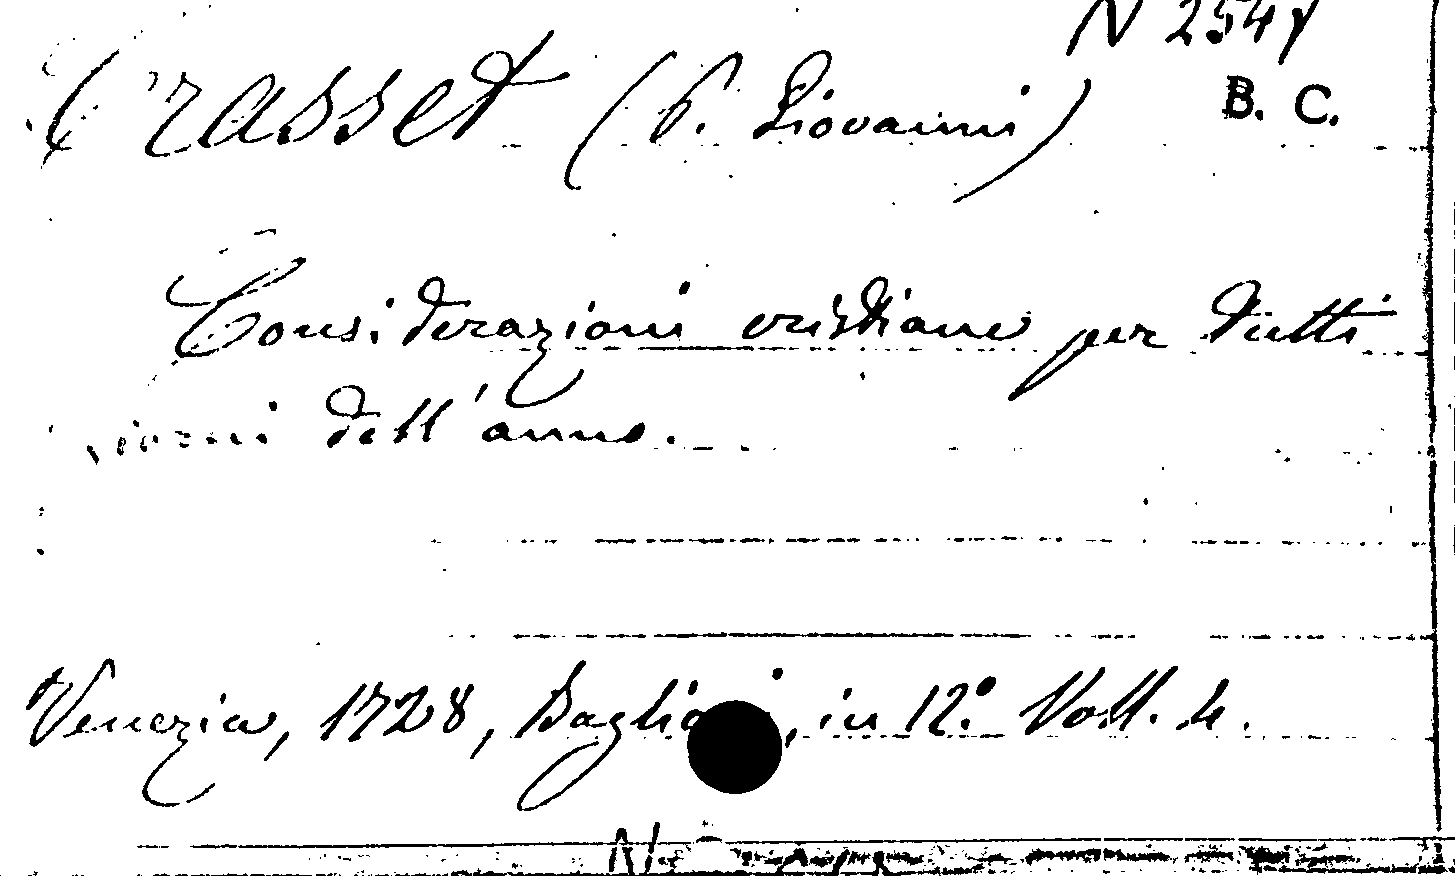 N 2541
Crasset (P. Giovanni)
B. C.
Considerazioni cristiane per tutti
giorni dell'anno.
Venezia, 1728, Baglioni, in 12.° Voll. 4.